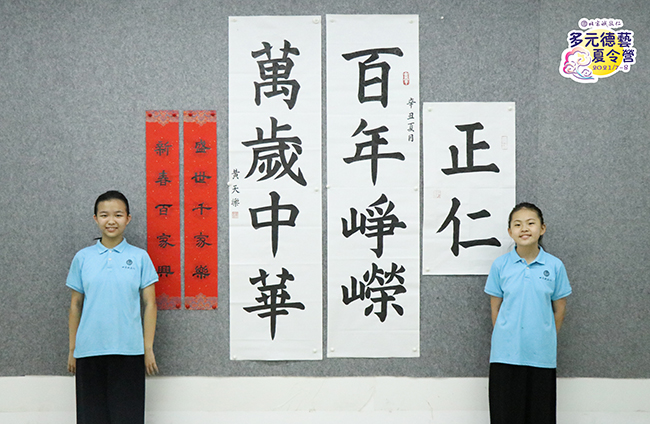 多元德藝
夏令營
2021/7-8
正仁
辛丑夏月
百年崢嶸
萬歲中華
黃天樂
盛世千家樂
新春百家興